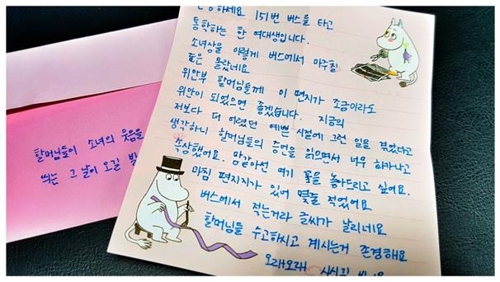 할머님들이 소녀의 웃음을
찍는 그 날이 오길
안녕하세요 151번 버스를 타고
통학하는 한 여대생입니다.
소녀상을 이렇게 버스에서 마주칠
줄은 몰랐네요
위안부 할머님들께 이 편지가 조금이라도
위안이 되었으면 좋겠습니다. 지금의
저보다 더 어렸던 예쁜 시절에 그런 일을 겪었다고
생각하니 할머님들의 증언을 읽으면서 너무 화가나고
속상했어요. 마같아선 여기 꽃을 놓아드리고 싶어요.
마침 편지지가 있어 몇줄 적었어요
버스에서 적는거라 글씨가 날리네요
할머님들 수고하시고 계시는거 존경해요
오래오래